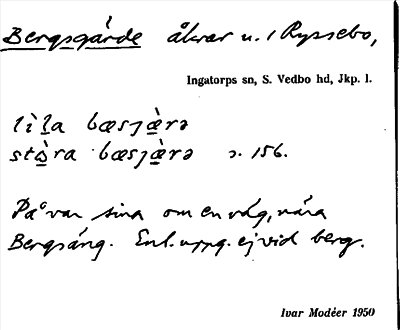 Bergsgärde åkrar u. 1 Ryssebo,
Ingatorps sn, S. Vedbo hd, Jkp. l.
lìl̠a bæsjæ̀rə
stò̠ra bæsjæ̀rə s. 156.
På var sina om en väg, nära
Bergsäng. Enl. uppg. ej vid berg.
Ivar Modéer 1950